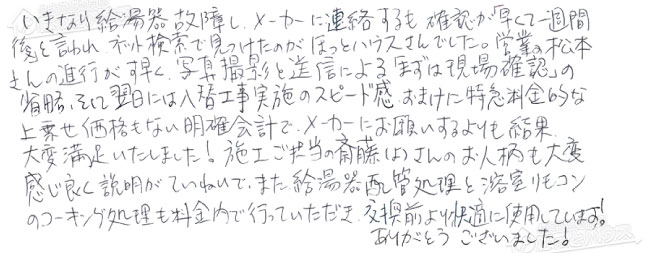 いきなり給湯器故障し、メーカーに連絡するも確認が「早くて一週間
後」と言われ ネット検索で見つけたのが ほっとハウスさんでした。営業の松本
さんの進行が早く、写真撮影と送信による「まずは現場確認」の
省略、そして翌日には入替工事実施のスピード感、おまけに特急料金的な
上乗せ価格もない明確会計で、メーカーにお願いするよりも結果、
大変満足いたしました! 施工ご担当の斎藤(は)さんのお人柄も大変
感じ良く説明がていねいで、また給湯器配管処理と浴室リモコン
のコーキング処理も料金内で行っていただき、交換前より快適に使用しています!
ありがとう ございました!